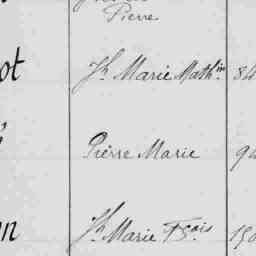 Pierre
ot Jh Marie Mathin 84
Pierre Marie 94
n Jh Marie Fçois 150